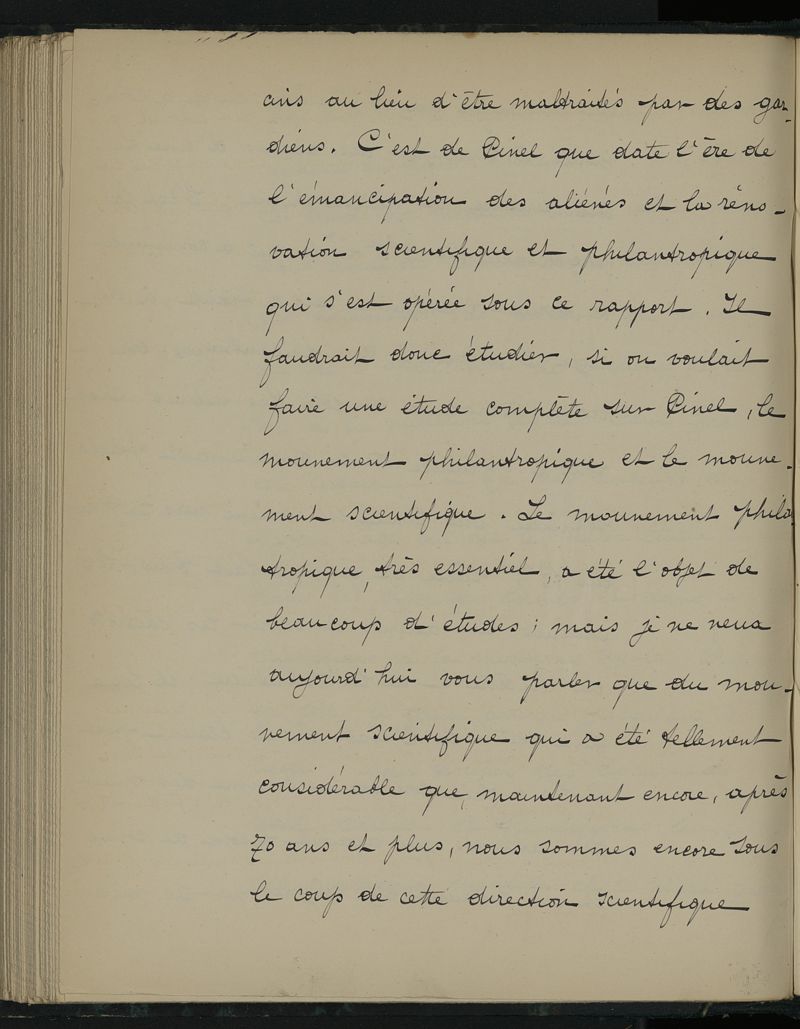 cins au lieu d'être maltraités par des gar-
diens. C'est de Pinel que date l'ère de
l'émancipation des aliénés et la réno-
vation scientifique et philantropique
qui s'est opérée sous ce rapport. Il
faudrait donc étudier, si on voulait
faire une étude complète sur Pinel, le
mouvement philantropique et le mouve-
ment scientifique. Le mouvement philan
tropique, très essentiel, a été l'objet de
beaucoup d'études ; mais je ne veux
aujourd'hui vous parler que du mou-
vement scientifique qui a été tellement
considérable que, maintenant encore, après
70 ans et plus, nous sommes encore sous
le coup de cette direction scientifique